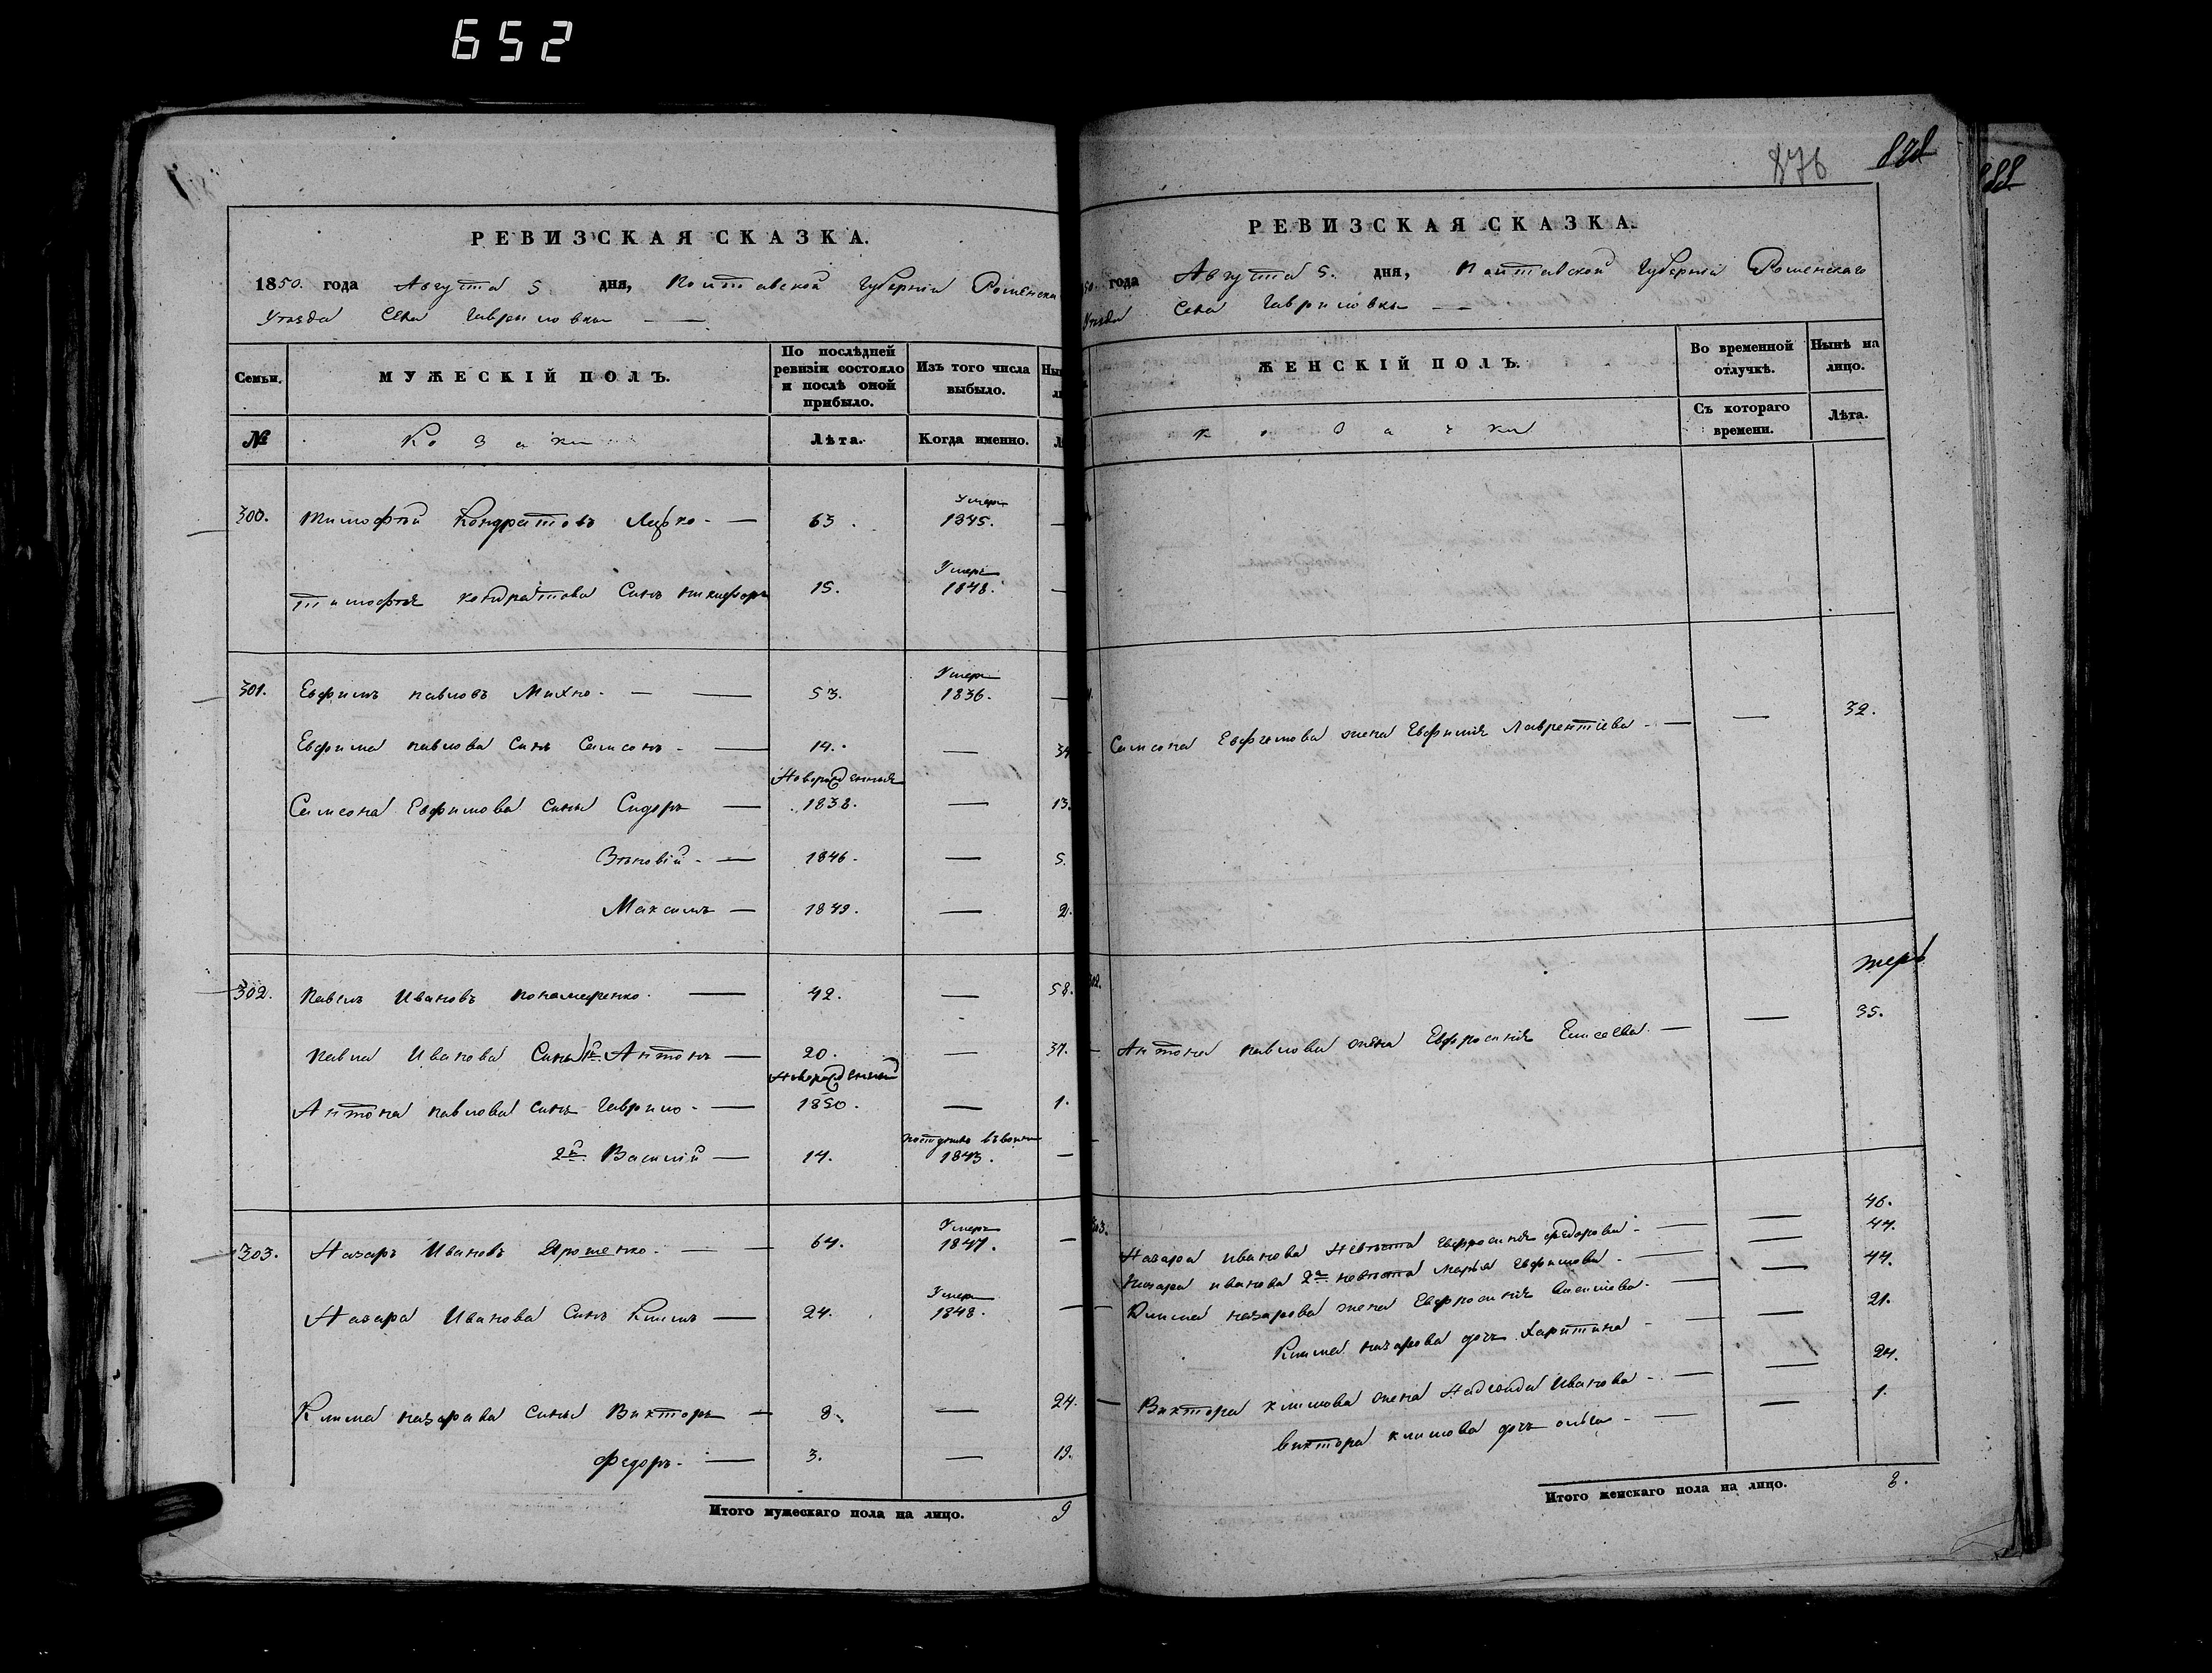 652
876
888
РЕВИЗСКАЯ СКАЗКА.
1850. года Августа 5. дня, Полтавской Губерніи Роменска
Уезда Села Гавриловки
Семьи. МУЖЕСКІЙ ПОЛЪ. По послѣдней ревизіи состояло и послѣ оной прибыло. Изъ того числа выбыло.
№ Козаки Лѣта. Когда именно.
300. Тимофей Кондратовъ 63. Умеръ 1845. —
Тимофея Кондратова Сынъ Никифоръ 15. Умеръ 1848. —
301. Евфимъ Павловъ Михно. — 53. Умеръ 1836. —
Евфима Павлова Сынъ Самсонъ - — 14. — 31
Новорожденные
Самсона Евфимова сыны Сидоръ — 1838. — 13.
Зѣновій - — 1846. — 5.
Максимъ — 1849. — 2.
302. Павелъ Ивановъ Пономаренко. — 42. — 58.
Павла Иванова Сыны 1й Антонъ — 20. — 37.
Новорожденный
Антона Павлова сынъ Гаврило - — 1850. — 1.
2й Василій — 14. 1843. —
303. Назаръ Ивановъ Ярошенко. — 64. Умеръ 1847. —
Назара Иванова Сынъ Климъ — 24. Умеръ 1848. —
Клима Назарова сыны Викторъ — 8. — 24.
Федоръ. — 3. — 19.
Итого мужескаго пола на лицо. 9
РЕВИЗСКАЯ СКАЗКА.
50. года Августа 5. дня, Полтавской Губерніи Роменскаго
Уезда Села Гавриловки —
ЖЕНСКІЙ ПОЛЪ. Во временной отлучкѣ. Нынѣ на лицо.
Козачки Съ котораго времени. Лѣта.
Самсона Евфимова жена Евфимія Лаврентіева - — — 32.
302.
Антона Павлова жена Евфросинія Елисеева. — — 35.
303. Назара Иванова невѣста Евфросинія Федорова - — — 46.
Назара Иванова 2я невѣста Марья Евфимова - — — 44.
Клима Назарова жена Евфросинія — — 44.
Клима Назарова дочь Харитина - — — 21.
Виктора Климова жена Надежда Иванова - — — 24.
Виктора Климова дочь Ольга - — — 1.
Итого женскаго пола на лицо. 8.